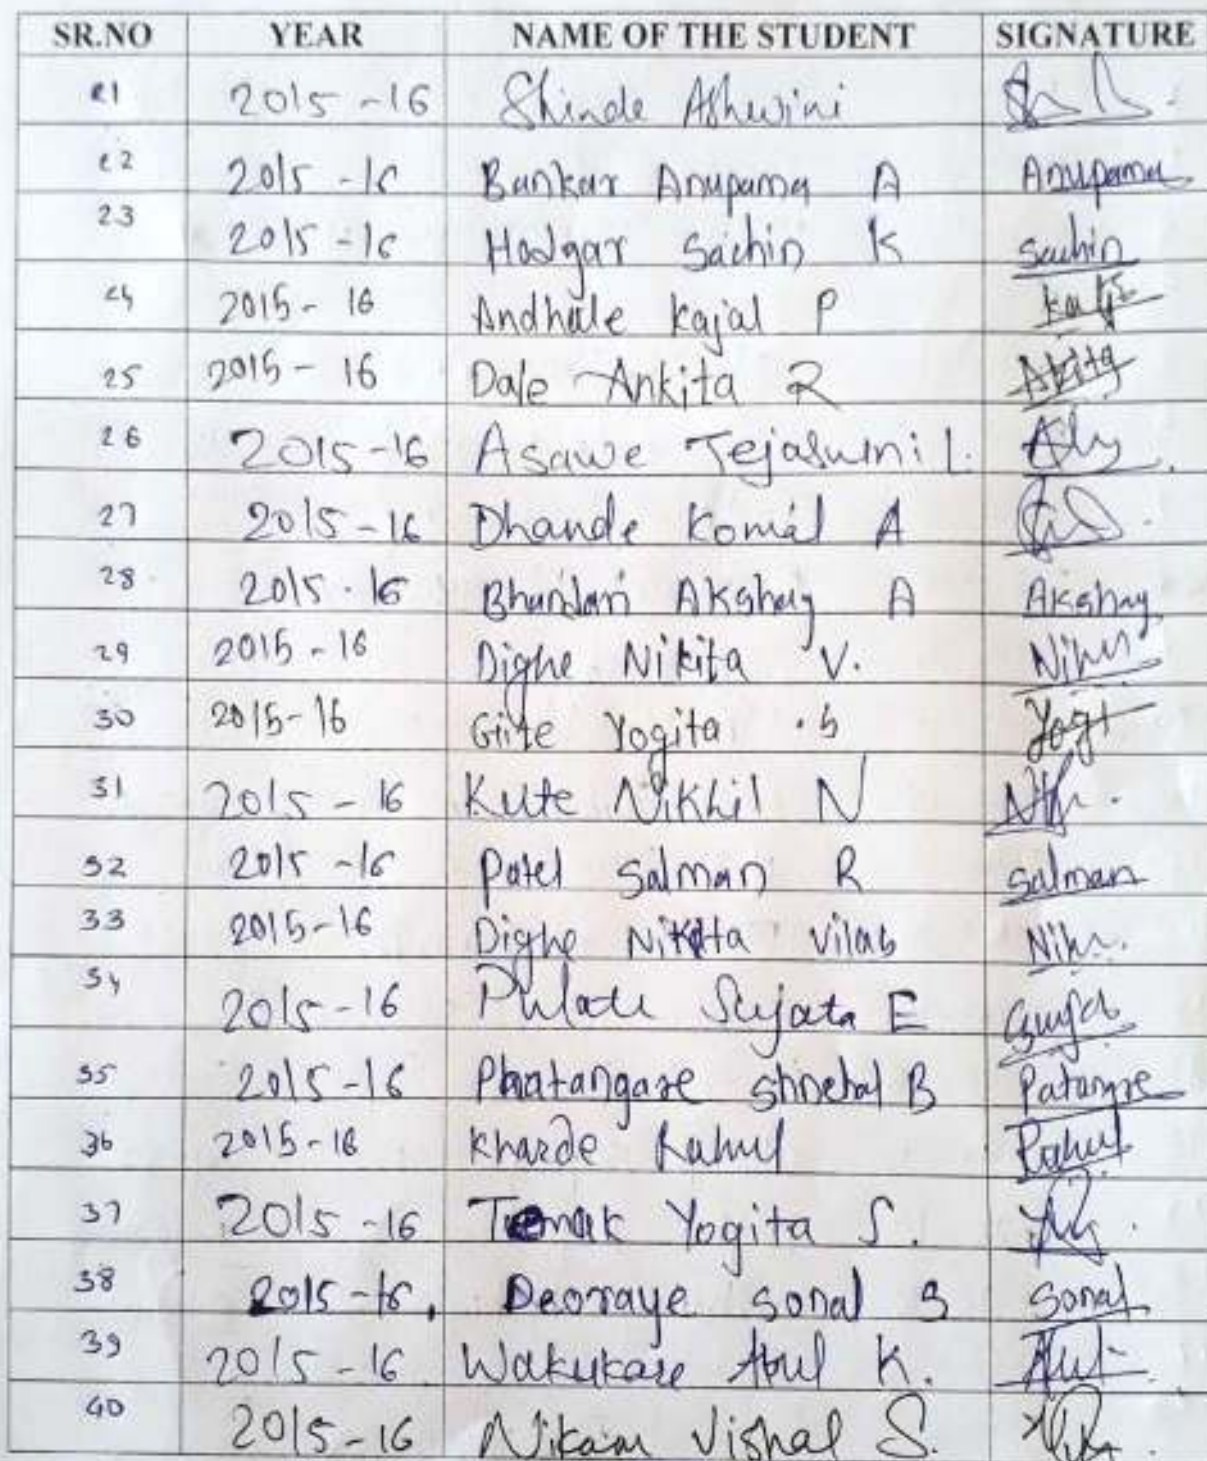 SR.NO YEAR NAME OF THE STUDENT SIGNATURE
21 2015-16 Shinde Ashwini
22 2015-16 Bankar Anupama A Anupama
23 2015-16 Hodgar Sachin K Sachin
24 2015-16 Andhale Kajal P
25 2015-16 Dale Ankita R Akita
26 2015-16 Asawe Tejaswini L.
27 2015-16 Dhande Komal A
28 2015-16 Bhandari Akshay A Akshay
29 2015-16 Dighe Nikita V.
30 2015-16 Gite Yogita .S Yogi
31 2015-16 Kute Nikhil N
32 2015-16 Patel Salman R Salman
33 2015-16 Dighe Nikita Vilas
34 2015-16 Sujata E
35 2015-16 Phatangare B Patangre
36 2015-16 Kharde Rahul Rahul
37 2015-16 Yogita S.
38 2015-16, Deoraye Sonal S Sonal
39 2015-16 Wakukare K.
40 2015-16 Nikam Vishal S.